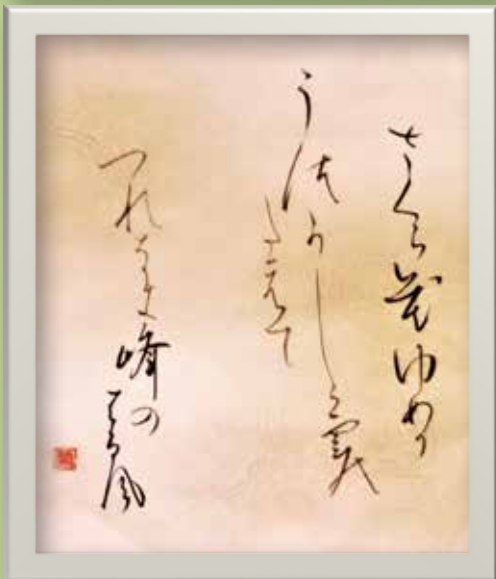 さくら花ゆめか
うつつかしら雲の
たえて
つれなき峰の
はる風